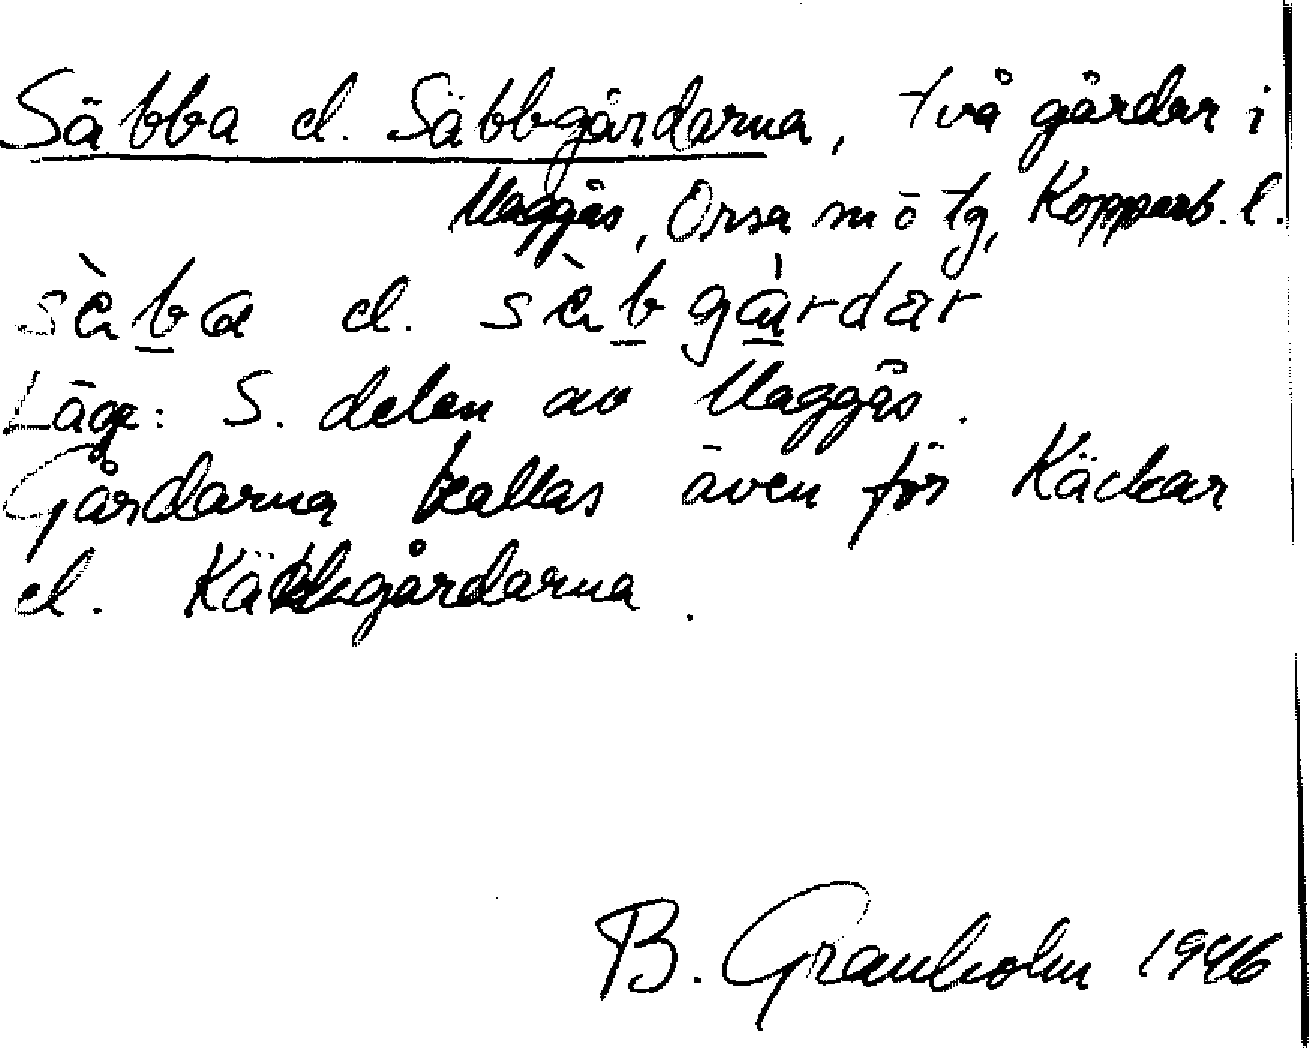 Säbba el. Säbbgårdarna, två gårdar i
Maggås, Orsa sn o tg, Kopparb. l.
sὲba el. sὲbgàrdar
Läge: S. delen av Maggås.
Gårdarna kallas även för Käckar
el. Käckgårdarna.
B. Granholm 1946